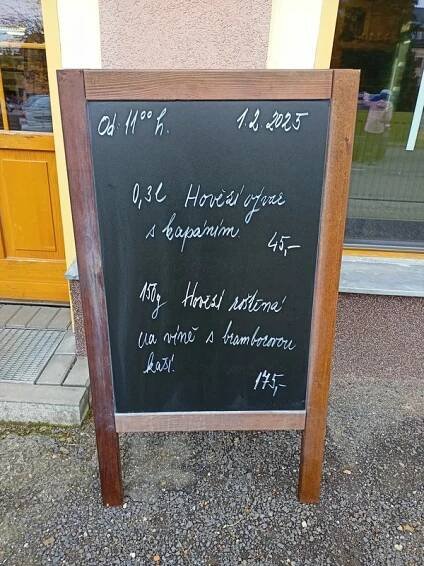 Od: 11⁰⁰ h. 1.2.2025
0,3l Hovězí vývar
s kapáním
45,-
150g Hovězí roštěná
na víně s bramborovou
kaší.
175,-